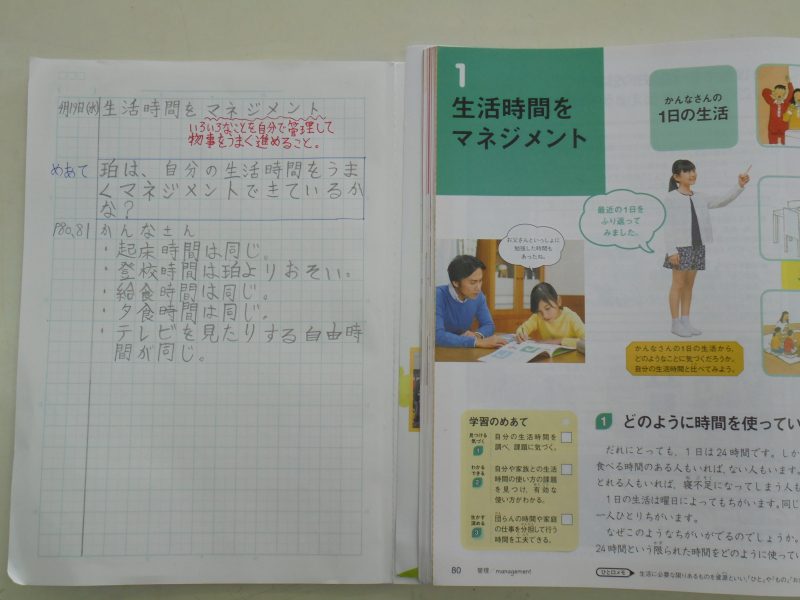 4月19日(水) 生活時間をマネジメント
いろいろなことを自分で管理して
物事をうまく進めること。
めあて 珀は、自分の生活時間をうま
くマネジメントできているか
な？
P80,81 かんなさん
・起床時間は同じ。
・登校時間は珀よりおそい。
・給食時間は同じ。
・夕食時間は同じ。
・テレビを見たりする自由時
間が同じ。
1
生活時間を
マネジメント
かんなさんの
1日の生活
最近の1日を
ふり返って
みました。
お父さんといっしょに
勉強した時間も
あったね。
かんなさんの1日の生活から、
どのようなことに気づくだろうか。
自分の生活時間と比べてみよう。
学習のめあて
見つける
気づく
1
自分の生活時間を
調べ、課題に気づく。
わかる
できる
2
自分や家族との生活
時間の使い方の課題
を見つけ、有効な
使い方がわかる。
生かす
深める
3
団らんの時間や家庭
の仕事を分担して行う
時間を工夫できる。
1 どのように時間を使ってい
だれにとっても、1日は24時間です。しか
食べる時間のある人もいれば、ない人もいます。
とれる人もいれば、寝不足になってしまう人も
1日の生活は曜日によってもちがいます。同じ
一人ひとりちがいます。
なぜこのようなちがいがでるのでしょうか。
24時間という限られた時間をどのように使ってい
80 管理／management
ひとロメモ 生活に必要な限りあるものを資源といい、「ひと」や「もの」、「お